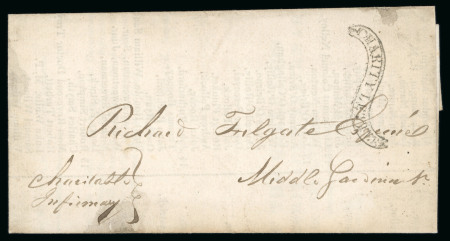 CHARITY LETTER
Richard Filgate Esqre
Charitable
Infirmary
Middle Gardiner St